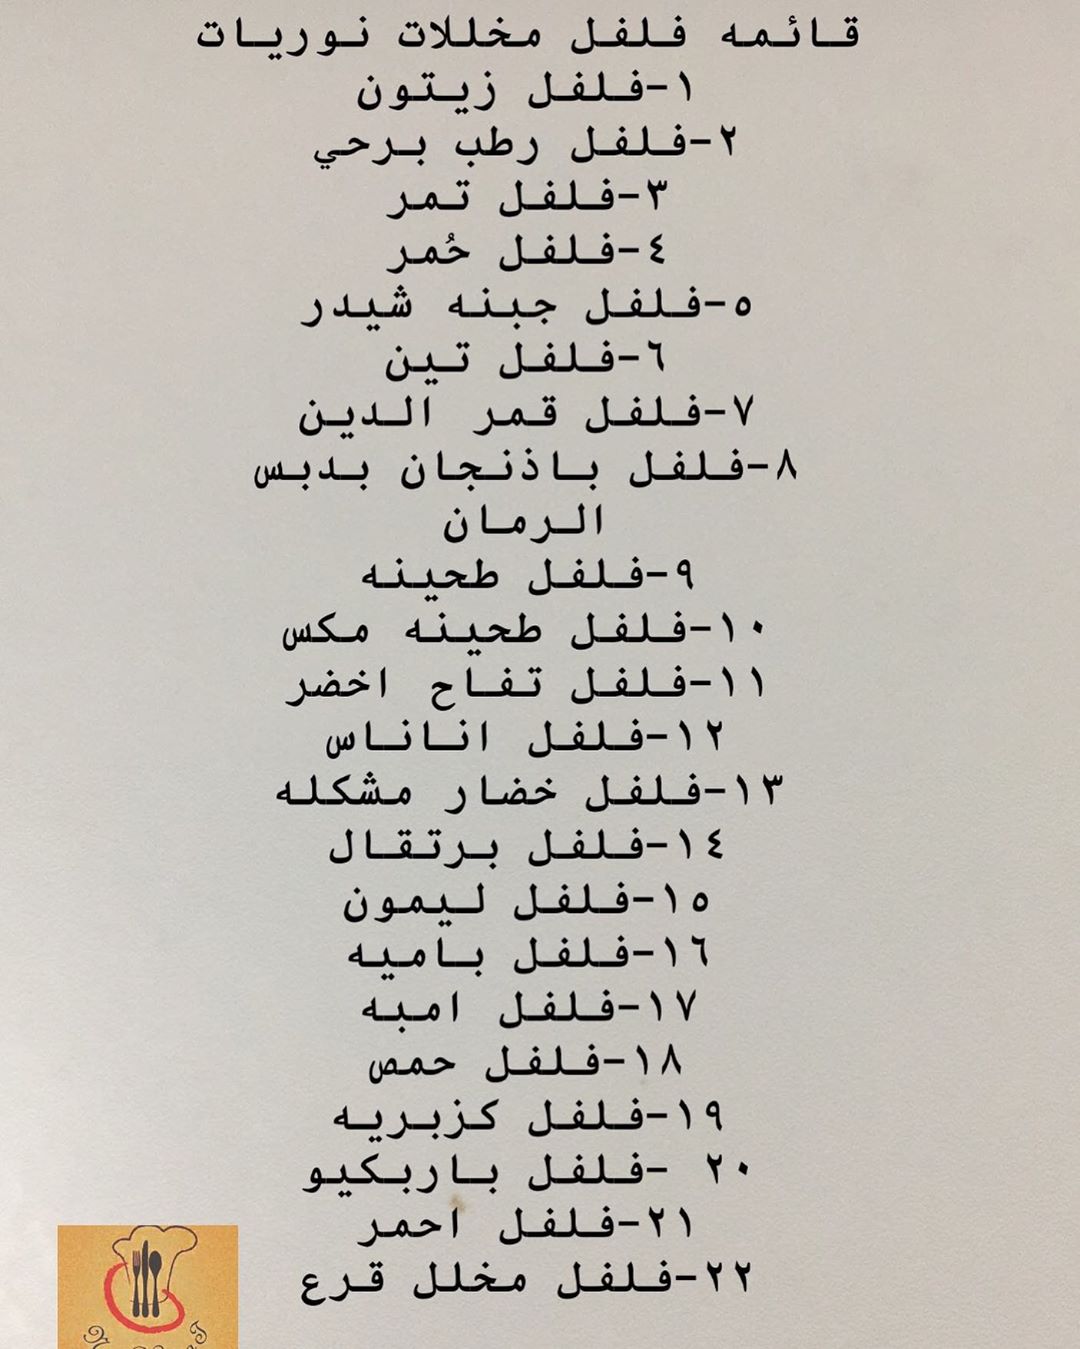 قائمه فلفل مخللات نوريات
١-فلفل زيتون
٢-فلفل رطب برحي
٣-فلفل تمر
٤-فلفل حُمر
٥-فلفل جبنه شيدر
٦-فلفل تين
٧-فلفل قمر الدين
٨-فلفل باذنجان بدبس
الرمان
٩-فلفل طحينه
١٠-فلفل طحينه مكس
١١-فلفل تفاح اخضر
١٢-فلفل اناناس
١٣-فلفل خضار مشكله
١٤-فلفل برتقال
١٥-فلفل ليمون
١٦-فلفل باميه
١٧-فلفل امبه
١٨-فلفل حمص
١٩-فلفل كزبريه
٢٠ -فلفل باربكيو
٢١-فلفل احمر
٢٢-فلفل مخلل قرع